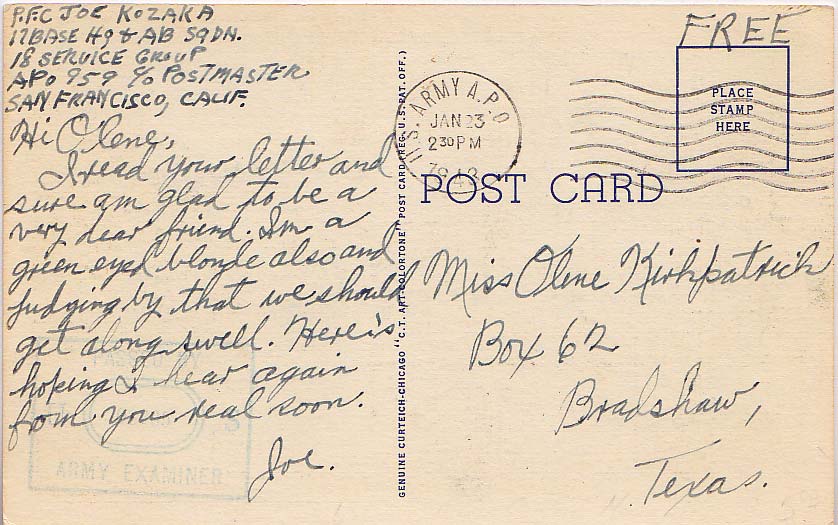 P.F.C JOE KOZAKA
17 BASE HQ & AB SQDN.
18 SERVICE GROUP
APO 959 c/o POSTMASTER
SAN FRANCISCO, CALIF.
Hi Olene,
I read your letter and
sure am glad to be a
very dear friend. I'm a
green eyed blonde also and
judging by that we should
get along swell. Here's
hoping I hear again
from you real soon.
Joe.
ARMY EXAMINER
GENUINE CURTEICH-CHICAGO "C.T. ART-COLORTONE" POST CARD (REG. U.S. PAT. OFF.)
U.S. ARMY A.P.O.
JAN 23
2 30 PM
1943
FREE
PLACE
STAMP
HERE
POST CARD
Miss Olene Kirkpatrick
Box 62
Bradshaw,
Texas.